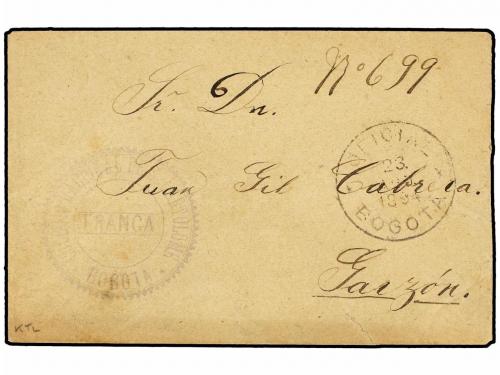 Nº 699
Sr. Dn.
Juan Gil Cabrera.
Garzón.
OFICIAL
23
BOGOTA
FRANCA
BOGOTA
KTL